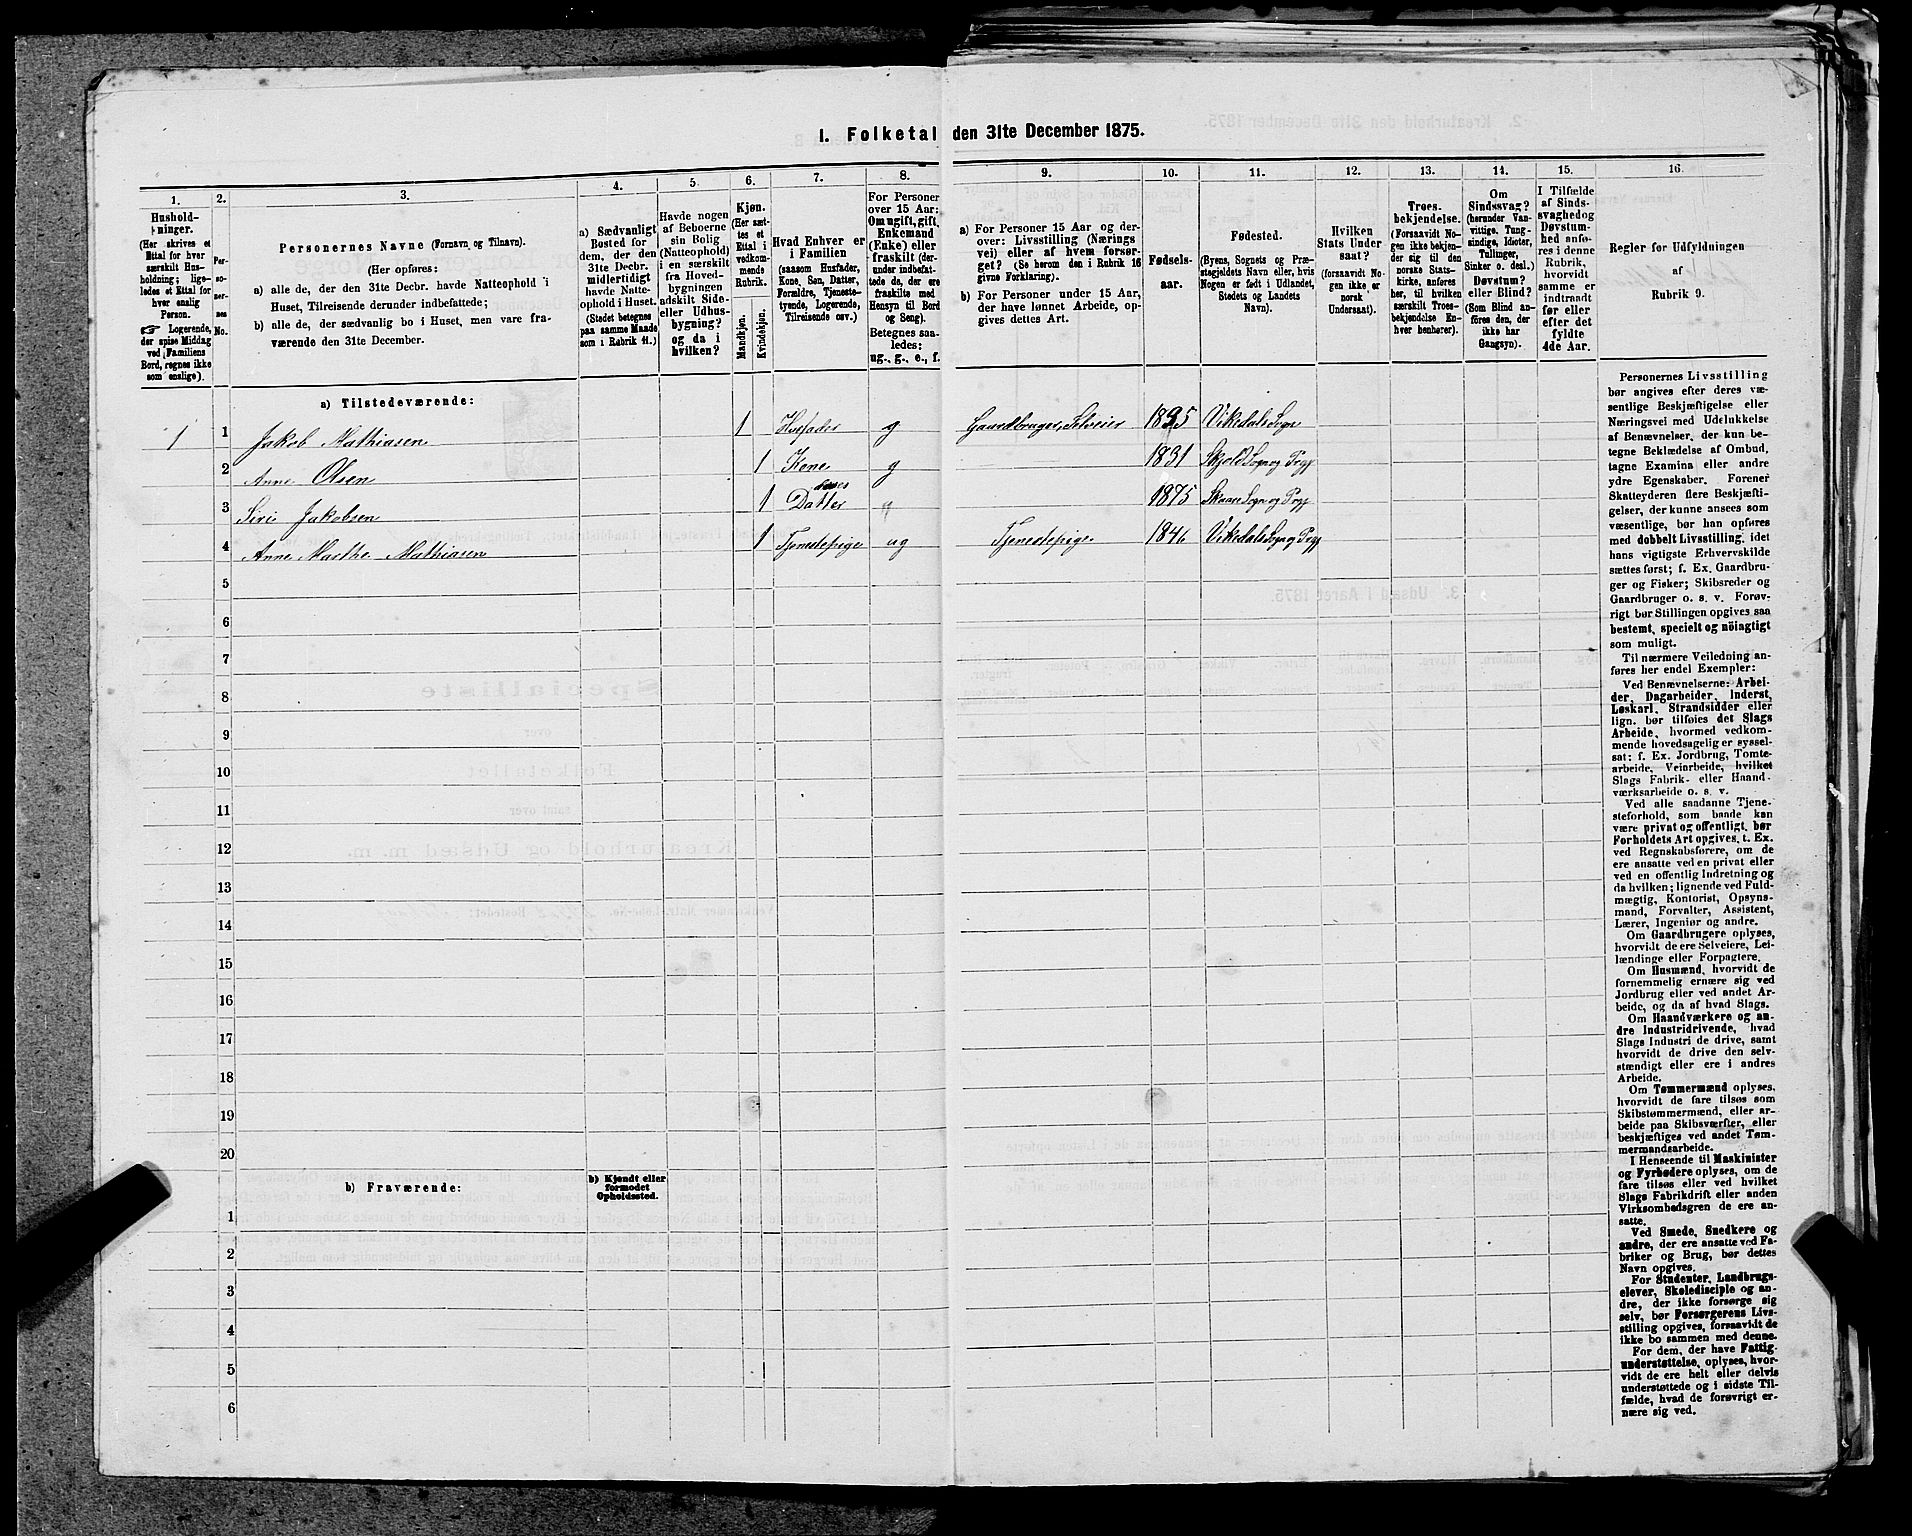 1. Folketal den 31te December 1875.
1. 2. 3. 4. 5. 6. 7. 8. 9. 10. 11. 12. 13. 14. 15. 16.
Hushold-
ninger.
(Her skrives et
Ettal for hver
særskilt Hus-
holdning; lige-
ledes et Ettal for
hver enslig
Person.
Logerende,
der spise Middag
ved Familiens
Bord, regnes ikke
som enslige).
Per-
so-
ner-
nes
No.
Personernes Navne (Fornavn og Tilnavn).
(Her opføres:
a) alle de, der den 31te Decbr. havde Natteophold i
Huset, Tilreisende derunder indbefattede;
b) alle de, der sædvanlig bo i Huset, men vare fra-
værende den 31te December.
a) Sædvanligt
Bosted for
dem, der den
31te Decbr.
midlertidigt
havde Natte-
ophold i Huset.
(Stedet betegnes
paa samme Maade
som i Rubrik 11.)
Havde nogen
af Beboerne
sin Bolig
(Natteophold)
i en særskilt
fra Hoved-
bygningen
adskilt Side-
eller Udhus-
bygning?
og da i
hvilken?
Kjøn.
(Her sæt-
tes et
Ettal i
vedkom-
mende
Rubrik.
Mandkjøn.
Kvindekjøn.
Hvad Enhver er
i Familien
(saasom Husfader,
Kone, Søn, Datter,
Forældre, Tjeneste-
tyende, Logerende,
Tilreisende osv.)
For Personer
over 15 Aar:
Om ugift, gift,
Enkemand
(Enke) eller
fraskilt (der-
under indbefat-
tede de, der ere
fraskilte med
Hensyn til Bord
og Seng).
Betegnes saa-
ledes:
ug., g., e., f.
a) For Personer 15 Aar og der-
over: Livsstilling (Nærings
vei) eller af hvem forsør-
get? (Se herom den i Rubrik 16
givne Forklaring).
b) For Personer under 15 Aar,
der have lønnet Arbeide, op-
gives dettes Art.
Fødsels-
aar.
Fødested.
(Byens, Sognets og Præ-
stegjeldets Navn eller, hvis
Nogen er født i Udlandet,
Stedets og Landets
Navn).
Hvilken
Stats Under
saat?
(forsaavidt No-
gen ikke er
norsk
Undersaat).
Troes-
bekjendelse.
(Forsaavidt No-
gen ikke bekjen-
der sig til den
norske Stats-
kirke, anføres
her, til hvilken
særskilt Troes-
bekjendelse En-
hver henhører).
Om
Sindssvag?
(herunder Van-
vittige. Tung-
sindige, Idioter,
Tullinger,
Sinker o. desl.)
Døvstum?
eller Blind?
(Som Blind an-
føres den, der
ikke har
Gangsyn).
I Tilfælde
af Sinds-
svaghed og
Døvstum-
hed anfø-
res i denne
Rubrik,
hvorvidt
samme er
indtraadt
før eller
efter det
fyldte
4de Aar.
Regler for Udfyldningen
af
Rubrik 9.
a) Tilstedeværende:
1 1 Jakob Mathiasen 1 Husfader g Gaardbruger, Selveier 1825 Vikedals Sogn
2 Anne Olsen 1 Kone g 1831 Skjold Sogn og Prgj
deres
3 Siri Jakobsen 1 Datter 1875 Skaare Sogn og Prgj
4 Anne Marthe Mathiasen 1 Tjenestepige ug Tjenestepige 1846 Vikedals Sogn og Prgj
5
6
7
8
9
10
11
12
13
14
15
16
17
18
19
20
b) Fraværende:
b) Kjendt eller
formodet
Opholdssted.
1
2
3
4
5
6
Personernes Livsstilling
bør angives efter deres væ-
sentlige Beskjæftigelse eller
Næringsvei med Udelukkelse
af Benævnelser, der kun be-
tegne Beklædelse af Ombud,
tagne Examina eller andre
ydre Egenskaber. Forener
Skatteyderen flere Beskjæfti-
gelser, der kunne ansees som
væsentlige, bør han opføres
med dobbelt Livsstilling, idet
hans vigtigste Erhvervskilde
sættes først; f. Ex. Gaardbru-
ger og Fisker; Skibsreder og
Gaardbruger o. s. v. Forøv-
rigt bør Stillingen opgives saa
bestemt, specielt og nöiagtigt
som muligt.
Til nærmere Veiledning an-
føres her endel Exempler:
Ved Benævnelserne: Arbei-
der, Dagarbeider, Inderst,
Løskarl, Strandsidder eller
lign. bør tilføies det Slags
Arbeide, hvormed vedkom-
mende hovedsagelig er syssel-
sat: f. Ex. Jordbrug, Tomte-
arbeide, Veiarbeide, hvilket
Slags Fabrik- eller Haand-
værksarbeide o. s. v.
Ved alle saadanne Tjene-
steforhold, som baade kan
være privat og offentligt, bør
Forholdets Art opgives, t. Ex.
ved Regnskabsførere, om de
ere ansatte ved en privat eller
ved en offentlig Indretning og
da hvilken; lignende ved Fuld-
mægtig, Kontorist, Opsyns-
mand, Forvalter, Assistent,
Lærer, Ingeniør og andre.
Om Gaardbrugere oplyses,
hvorvidt de ere Selveiere, Lei-
lændinge eller Forpagtere.
Om Husmænd, hvorvidt de
fornemmelig ernære sig ved
Jordbrug eller ved andet Ar-
beide, og da af hvad Slags.
Om Haandværkere og an-
dre Industridrivende, hvad
Slags Industri de drive, samt
hvorvidt de drive den selv-
stændigt eller ere i andres
Arbeide.
Om Tømmermænd oplyses,
hvorvidt de fare tilsøs som
Skibstømmermænd, eller ar-
beide paa Skibsværfter, eller
beskjæftiges ved andet Tøm-
mermandsarbeide.
I Henseende til Maskinister
og Fyrbødere oplyses, om de
fare tilsøs eller ved hvilket
Slags Fabrikdrift eller anden
Virksombedsgren de ere an-
satte.
Ved Smede, Snedkere og
andre, der ere ansatte ved Fa-
briker og Brug, bør dettes
Navn opgives.
For Studenter, Landbrugs-
elever, Skoledisciple og an-
dre, der ikke forsørge sig
selv, bør Forsørgerens Livs-
stilling opgives, forsaavidt de
ikke bo sammen med denne.
For dem, der have Fattig-
understøttelse, oplyses, hvor-
vidt de ere helt eller delvis
understøttede og i sidste Til-
fælde, hvad de forøvrigt er-
nære sig ved.